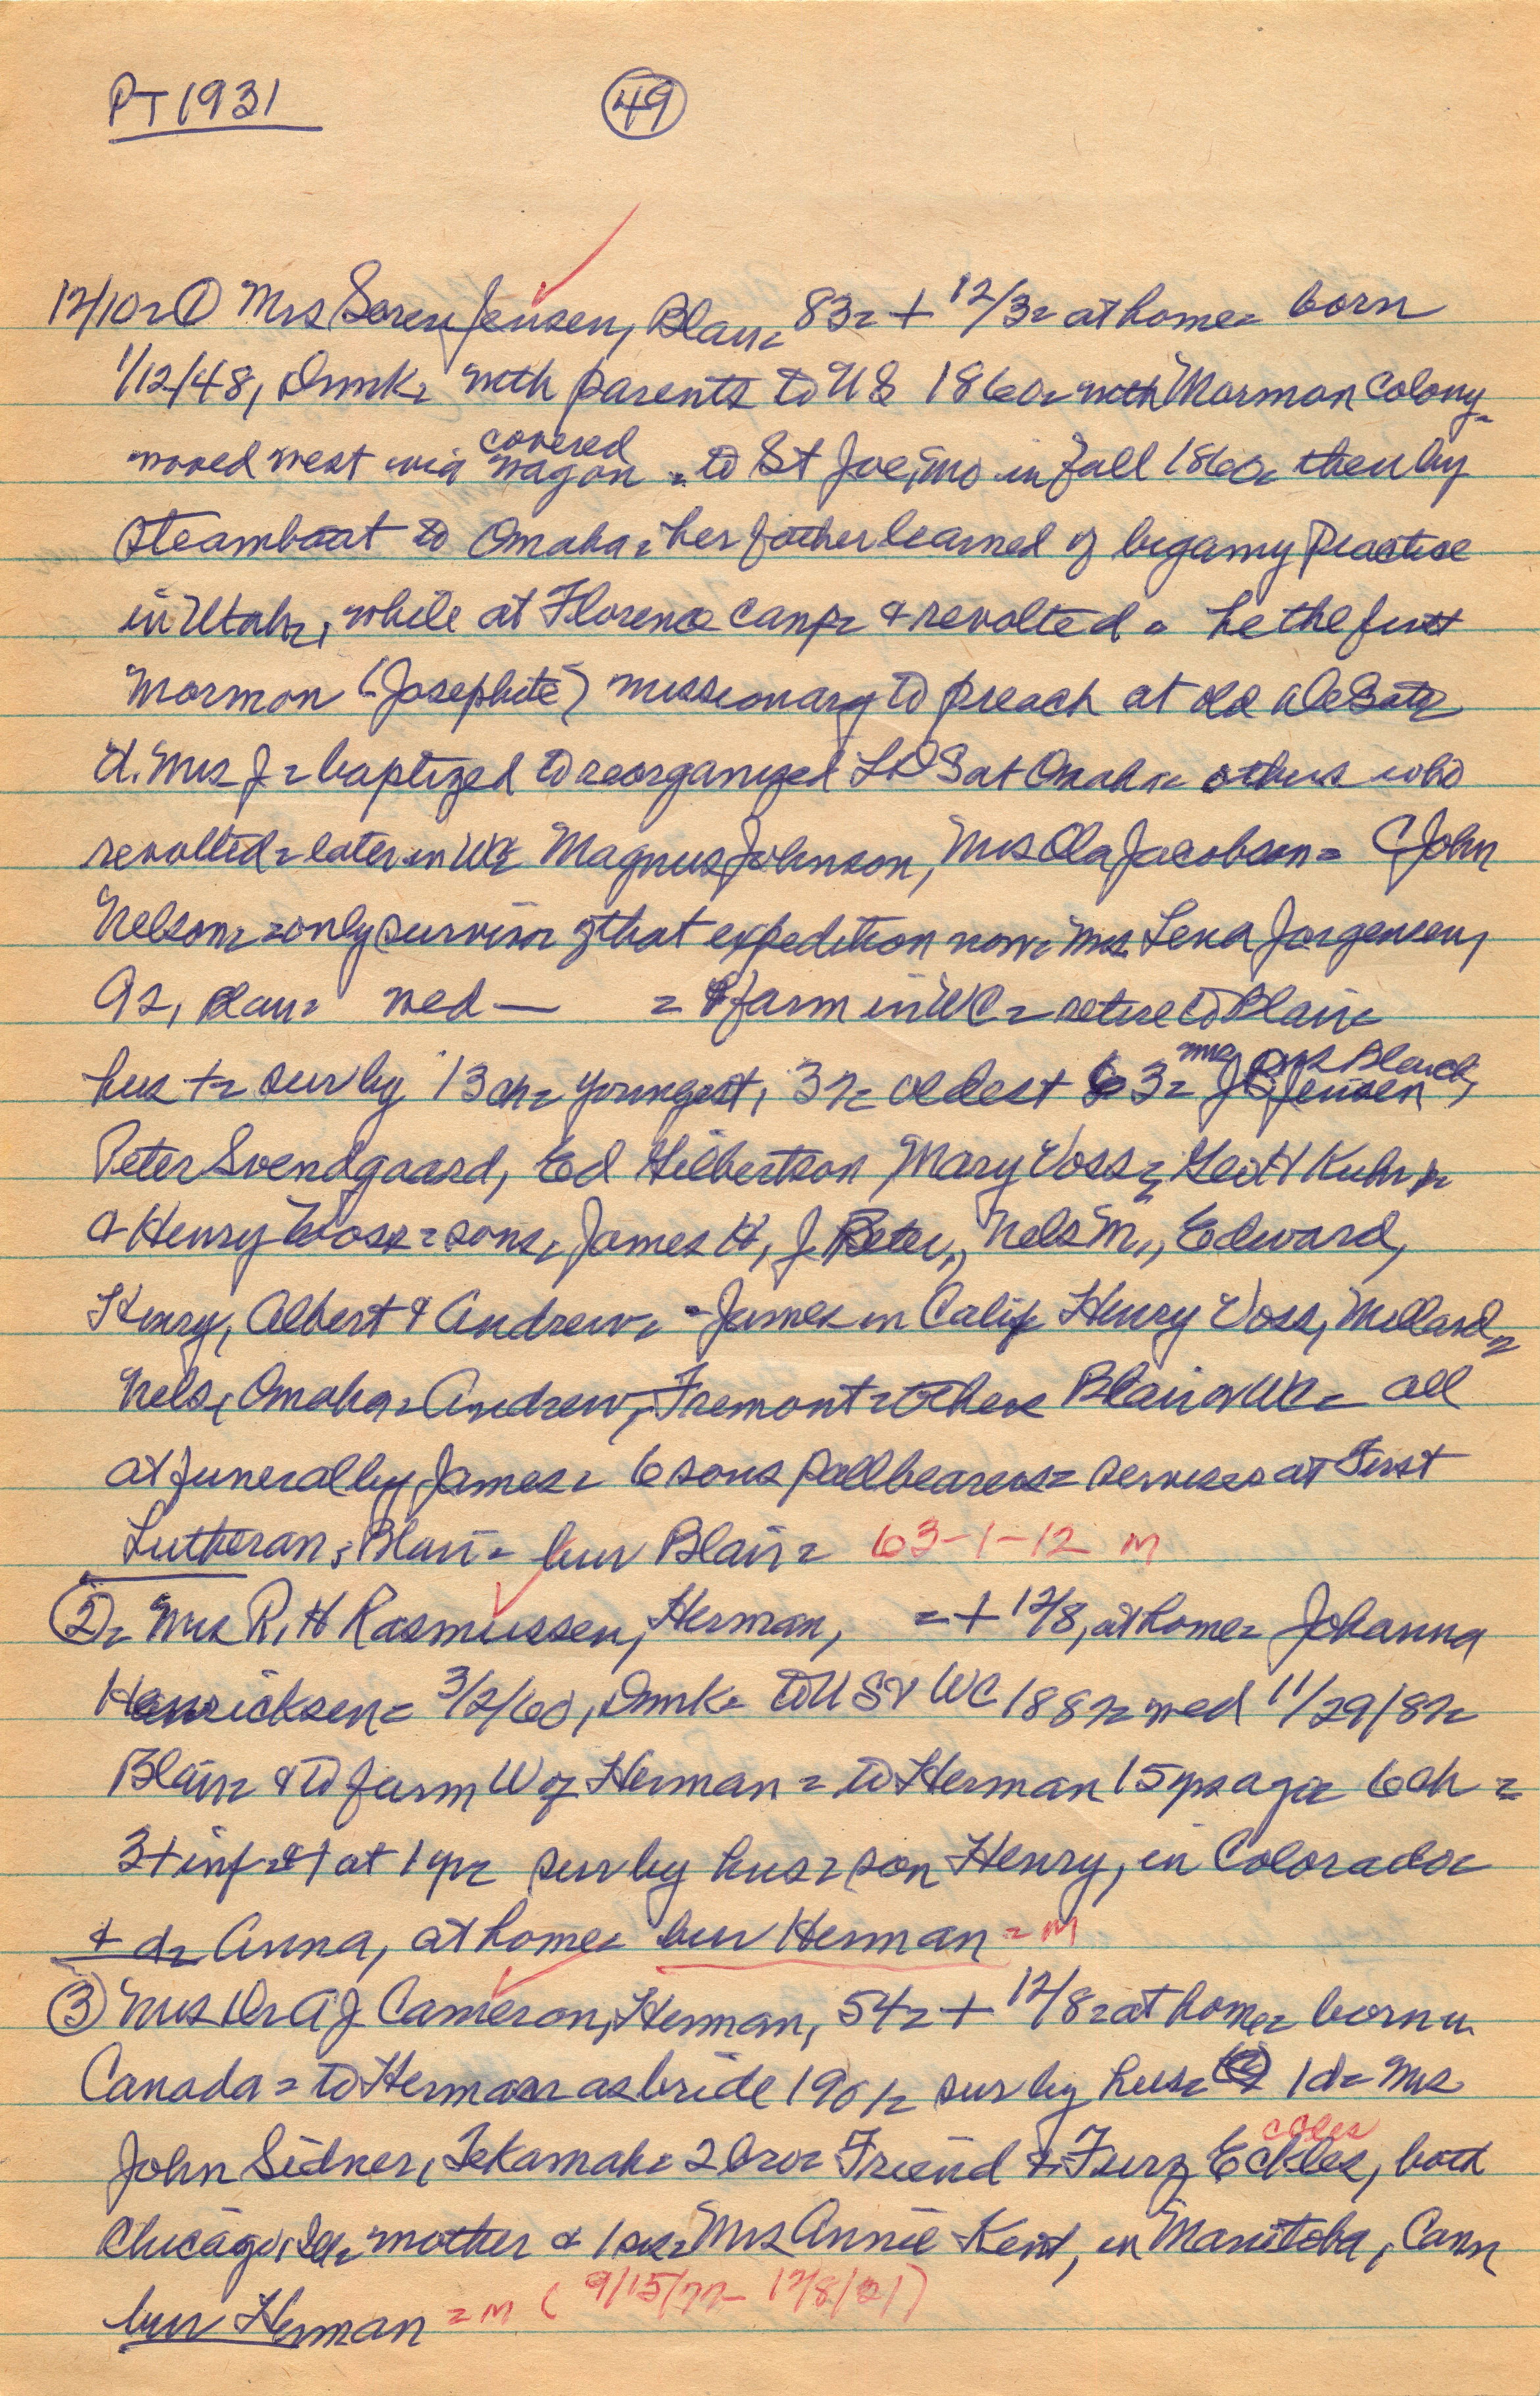 PT 1931 49
12/10= ① Mrs Soren Jensen, Blair= 83= + 12/3= at home= born
1/12/48, Dnmk= with parents to US 1860= with Mormon Colony=
moved west via covered wagon = to St Joe, Mo in fall 1860= then by
steamboat to Omaha= her father learned of bigamy practise
in Utah=, while at Florence camp= & revolted = he the first
Mormon (Josephite) missionary to preach at old DeSoto=
Mrs J= baptized to reorganized LDS at Omaha= others who
revolted= later in WC= Magnus Johnson, Mrs Ola Jacobson= C John
Nelson= =only survivor of that expedition now= Mrs Lena Jorgensen,
92, Blair= wed — = farm in WC= retire to Blair=
hus += sur by 13 ch= youngest, 37= oldest 63= Mrs Jens Blauch,
JB Jensen,
Peter Svendgaard, Ed Hilbertson Mary Voss= Geo H Kuhr=
& Henry Voss= sons, James H, J Peter, Nels M., Edward,
Henry, Albert & Andrew= =James in Calif= Henry Voss, Millard=
Nels, Omaha= Andrew, Fremont= others Blair or WC= all
at funeral by James= 6 sons pallbearers= services at First
Lutheran, Blair= bur Blair= 63-1-12 M
②= Mrs R. H Rasmussen, Herman, =+ 12/8, at home= Johanna
Henricksen= 3/2/60, Dnmk= to US & WC 1887= wed 11/29/87=
Blair= & to farm W of Herman= to Herman 15 yrs ago= 6 ch =
3 + inf= &1 at 1 yr= sur by hus= son Henry, in Colorado=
& d= Anna, at home= bur Herman = M
③ Mrs Dr A J Cameron, Herman, 54= + 12/8= at home= born in
Canada= to Herman as bride 1901= sur by hus= 1 d= Mrs
John Sidner, Tekamah= 2 bro= Friend & Ferg Eckles, both
ccles
Chicago, Ill= mother & 1 sis= Mrs Annie Kent, in Manitoba, Can=
bur Herman = M (9/15/77- 12/8/31)